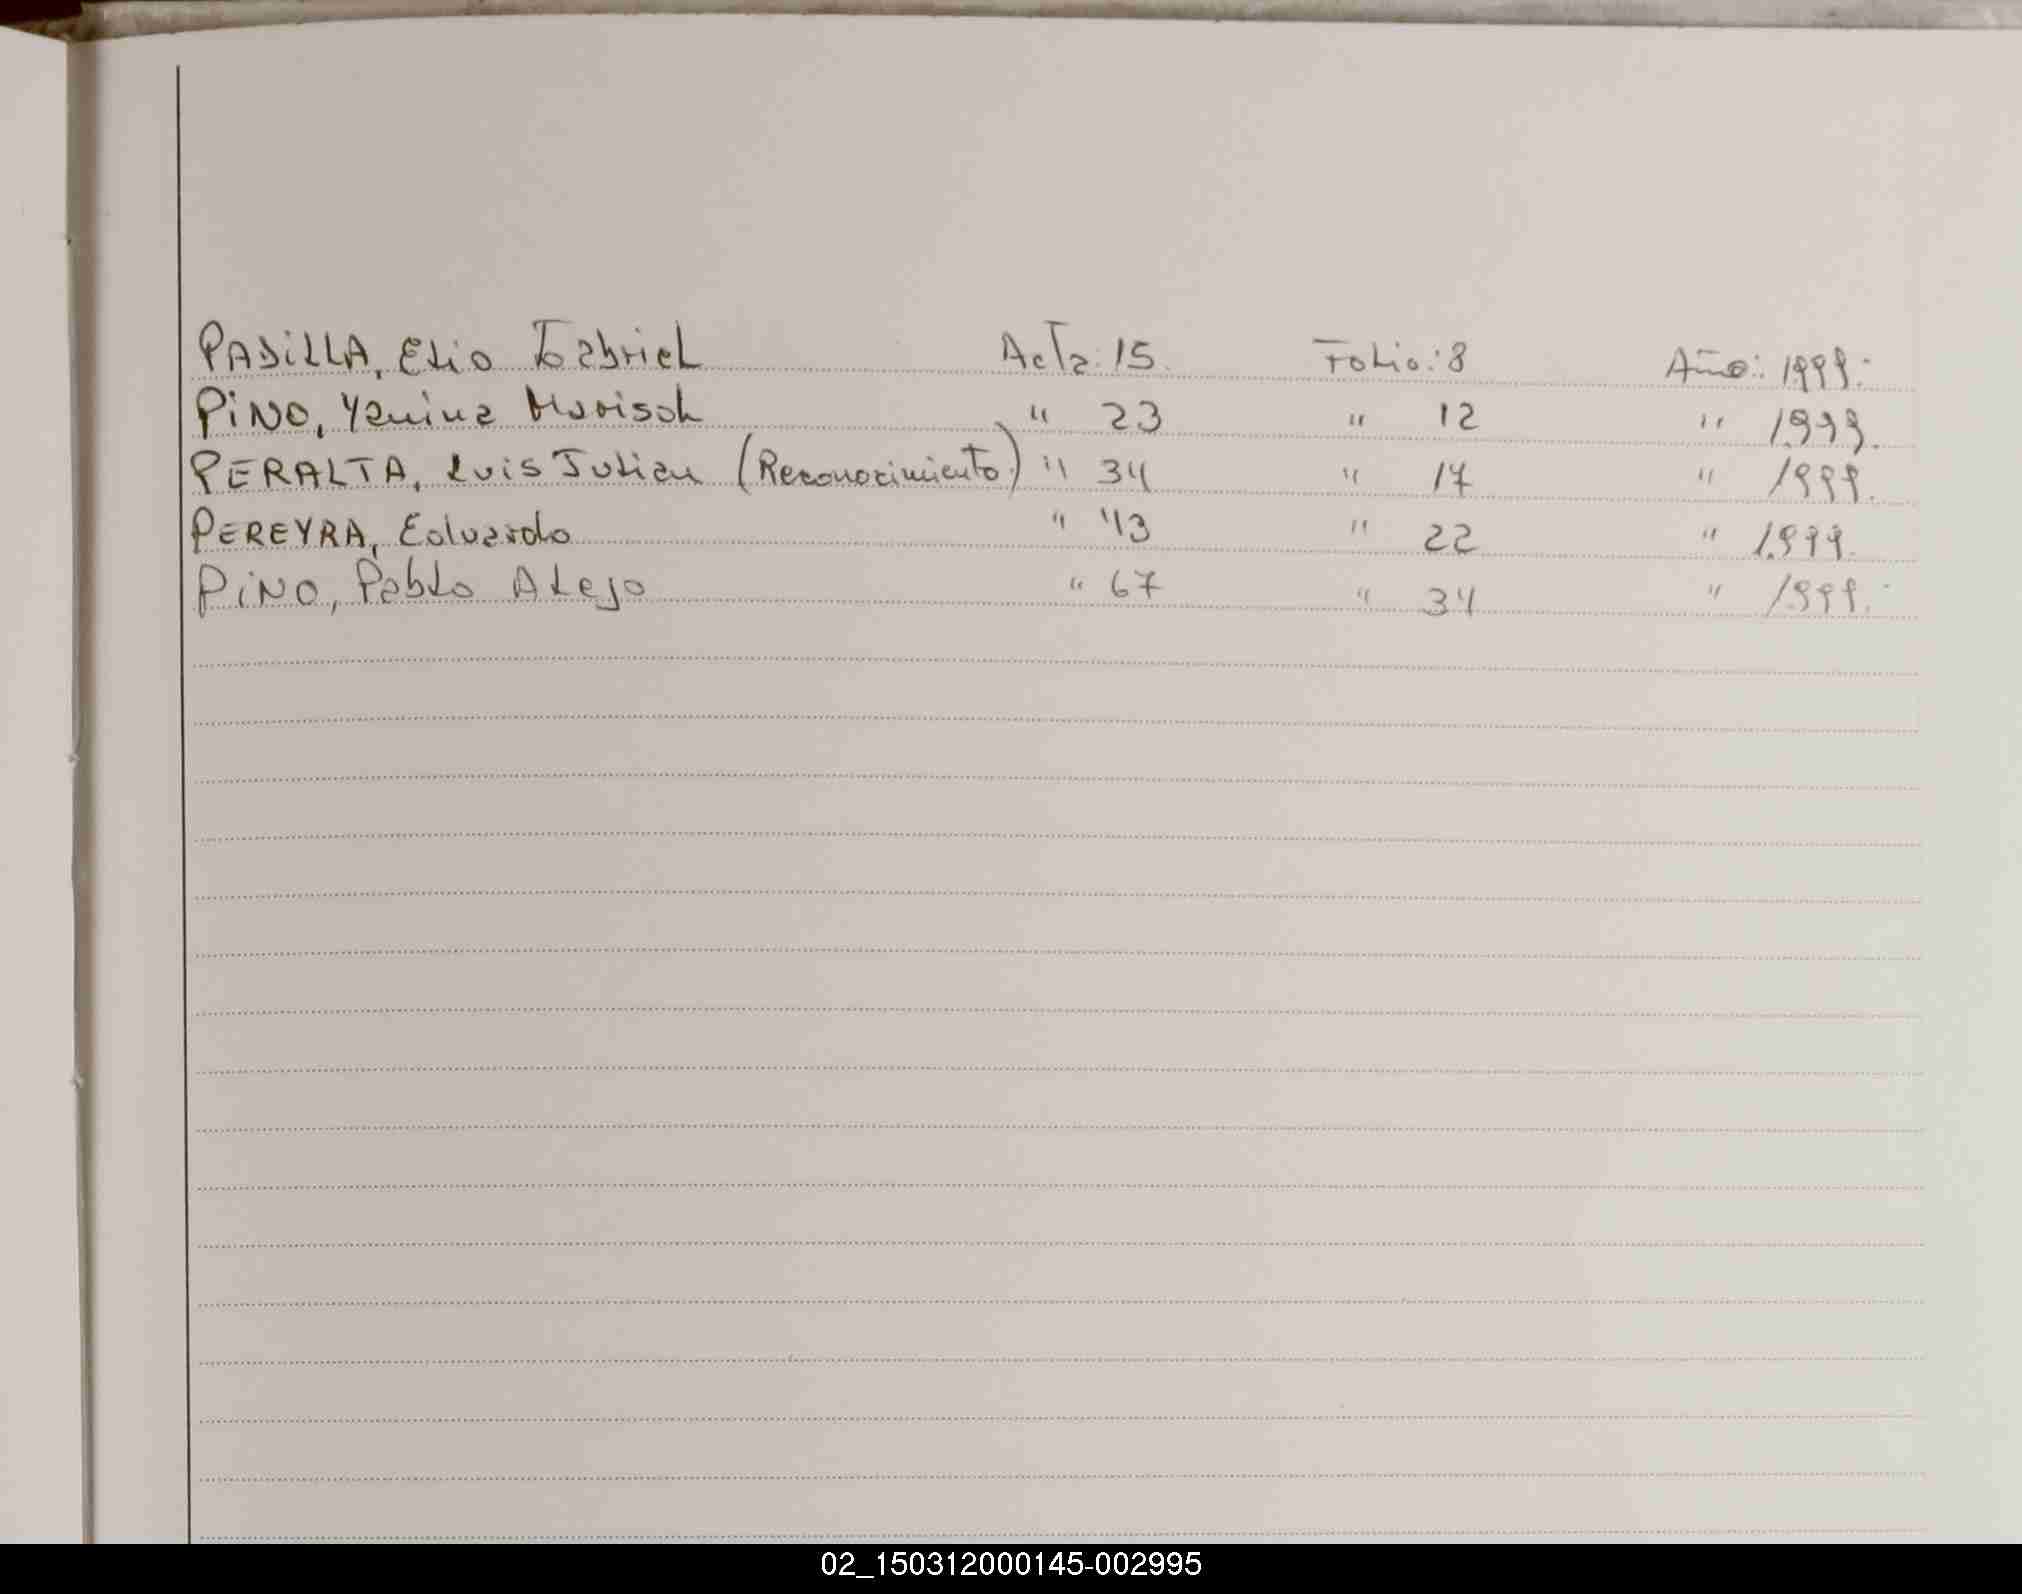 PADILLA, Elio Gabriel Acta: 15. Folio: 8 Año: 1.999.-
PINO, Yanina Marisol " 23 " 12 " 1.999.
PERALTA, Luis Julian (Reconocimiento) " 34 " 17 " 1999.
PEREYRA, Eduardo " 43 " 22 " 1.999.
PINO, Pablo Alejo " 67 " 34 " 1.999.-
02_150312000145-002995